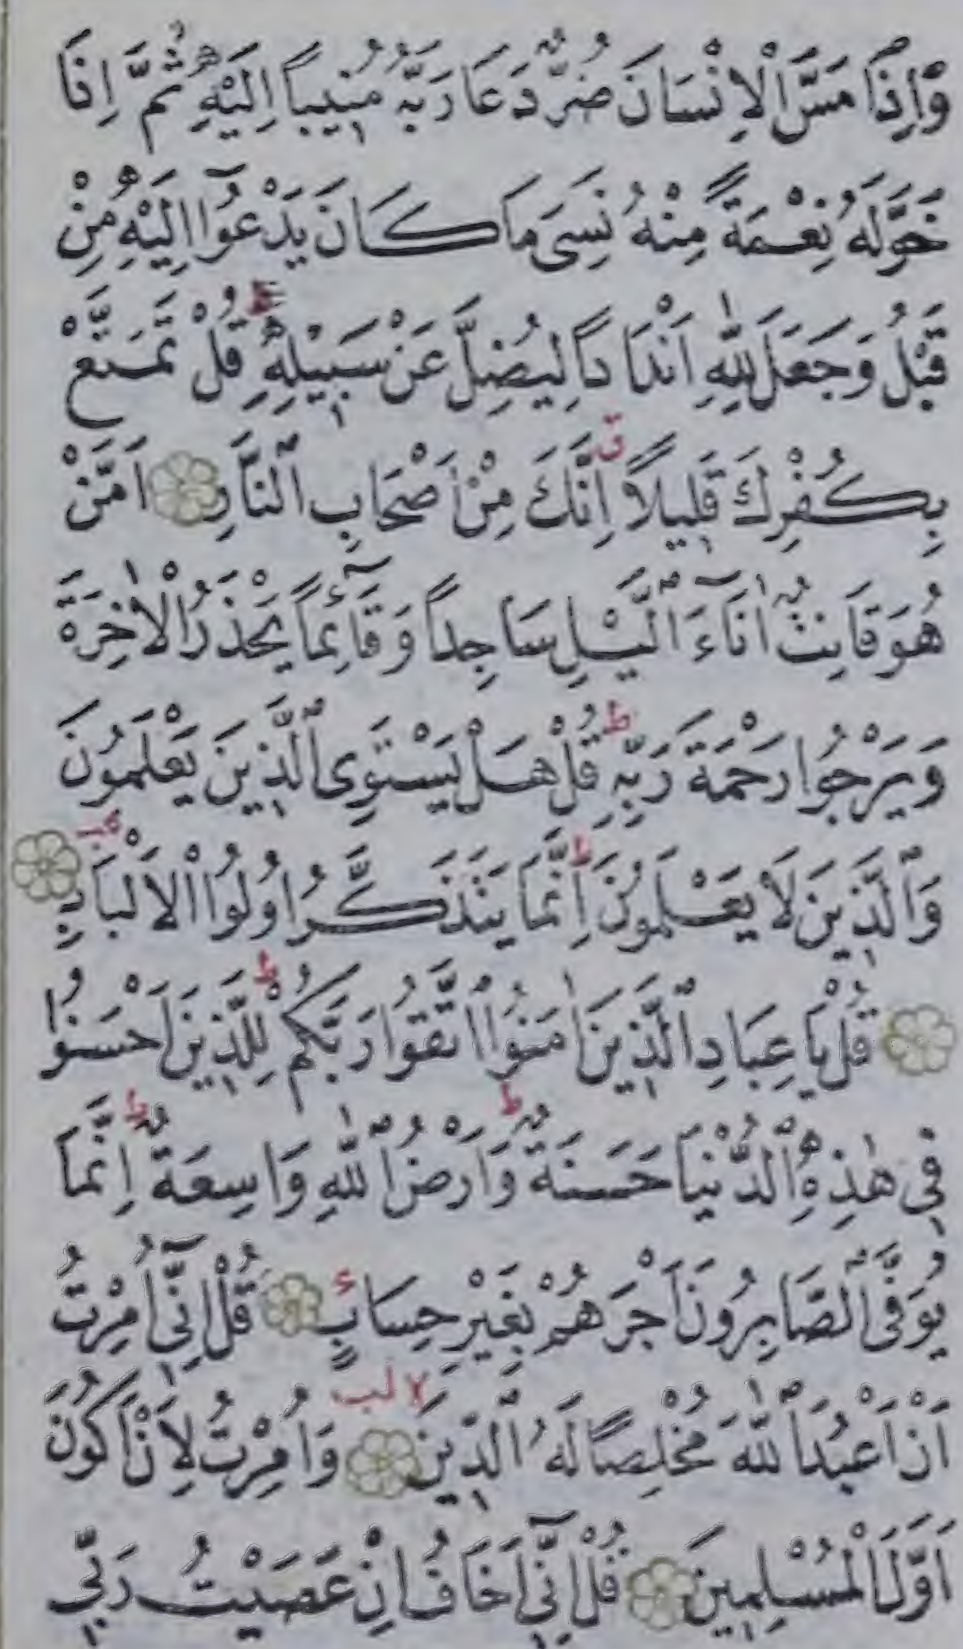 وَاِذَا مَسَّ الْاِنْسَانَ ضُرٌّ دَعَا رَبَّهُ مُنِيبًا اِلَيْهِ ثُمَّ اِذَا
خَوَّلَهُ نِعْمَةً مِنْهُ نَسِىَ مَا كَانَ يَدْعُوٓا اِلَيْهِ مِنْ
قَبْلُ وَجَعَلَ لِلّٰهِ اَنْدَادًا لِيُضِلَّ عَنْ سَبِيلِهِ ط قُلْ تَمَتَّعْ
بِكُفْرِكَ قَلِيلًا ق اِنَّكَ مِنْ اَصْحَابِ النَّارِ اَمَّنْ
هُوَ قَانِتٌ اٰنَٓاءَ الَّيْلِ سَاجِدًا وَقَٓائِمًا يَحْذَرُ الْاٰخِرَةَ
وَيَرْجُوا رَحْمَةَ رَبِّهِ ط قُلْ هَلْ يَسْتَوِى الَّذِينَ يَعْلَمُونَ
وَالَّذِينَ لَا يَعْلَمُونَ ط اِنَّمَا يَتَذَكَّرُ اُولُوا الْاَلْبَابِ
قُلْ يَا عِبَادِ الَّذِينَ اٰمَنُوا اتَّقُوا رَبَّكُمْ ط لِلَّذِينَ اَحْسَنُوا
فِى هٰذِهِ الدُّنْيَا حَسَنَةٌ ط وَاَرْضُ اللّٰهِ وَاسِعَةٌ ط اِنَّمَا
يُوَفَّى الصَّابِرُونَ اَجْرَهُمْ بِغَيْرِ حِسَابٍ قُلْ اِنِّٓى اُمِرْتُ
اَنْ اَعْبُدَ اللّٰهَ مُخْلِصًا لَهُ الدِّينَ لا لب وَاُمِرْتُ لِاَنْ اَكُونَ
اَوَّلَ الْمُسْلِمِينَ قُلْ اِنِّٓى اَخَافُ اِنْ عَصَيْتُ رَبِّى